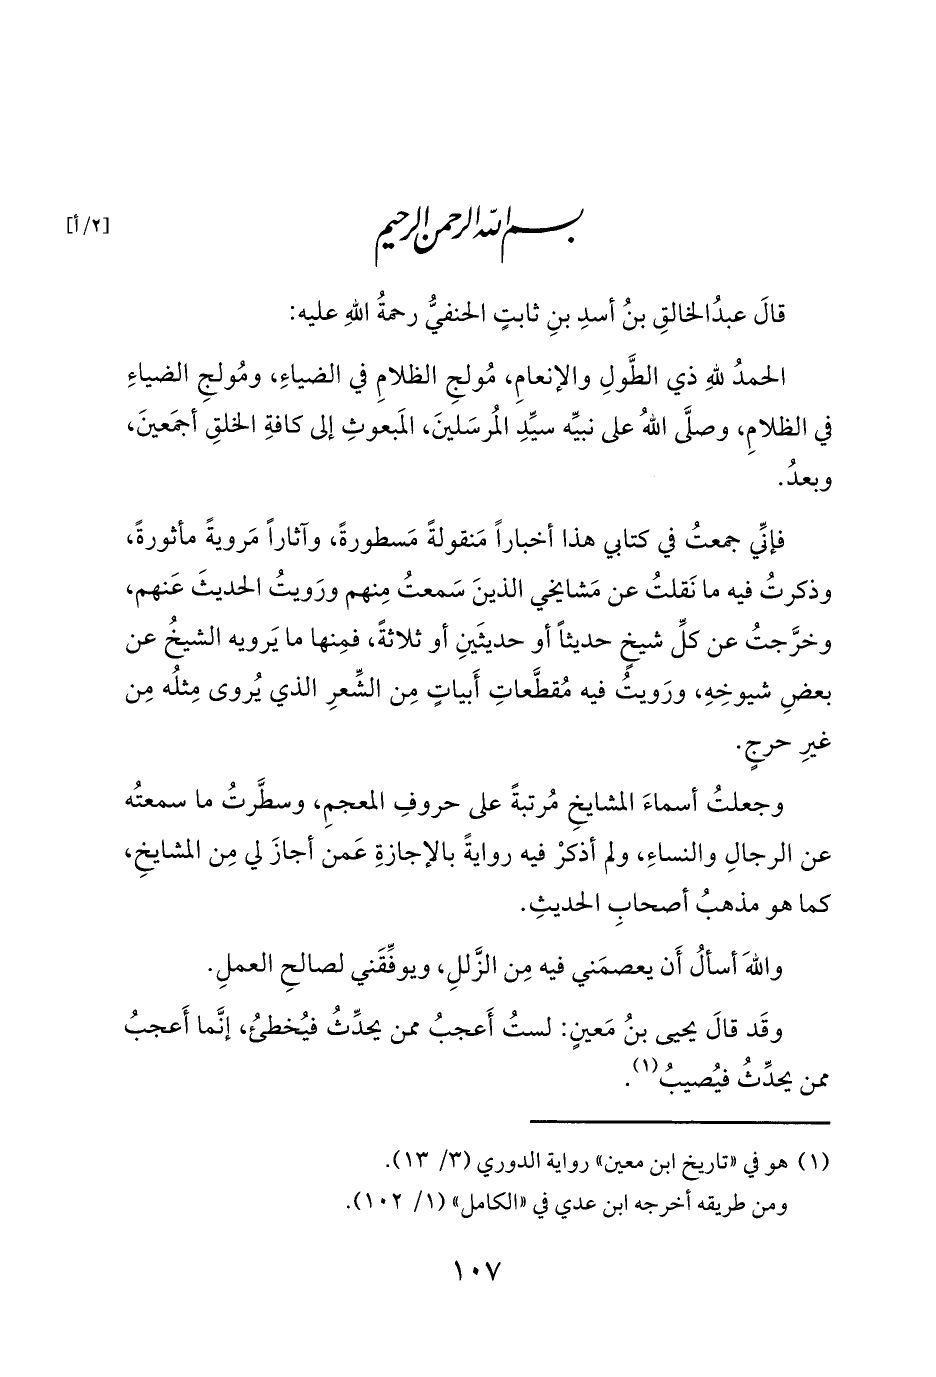 [٢/أ]
بسم الله الرحمن الرحيم
قالَ عبدُالخالقِ بنُ أسدِ بنِ ثابتٍ الحنفيُّ رحمةُ اللهِ عليه:
الحمدُ للهِ ذي الطَّولِ والإنعامِ، مُولجِ الظلامِ في الضياءِ، ومُولجِ الضياءِ
في الظلامِ، وصلَّى اللهُ على نبيِّه سيِّدِ المُرسَلينَ، المَبعوثِ إلى كافةِ الخلقِ أجمَعينَ،
وبعدُ.
فإنِّي جمعتُ في كتابي هذا أخباراً مَنقولةً مَسطورةً، وآثاراً مَرويةً مأثورةً،
وذكرتُ فيه ما نَقلتُ عن مَشايخي الذينَ سَمعتُ مِنهم ورَويتُ الحديثَ عَنهم،
وخرَّجتُ عن كلِّ شيخٍ حديثاً أو حديثَينِ أو ثلاثةً، فمِنها ما يَرويه الشيخُ عن
بعضِ شيوخِهِ، ورَويتُ فيه مُقطَّعاتِ أَبياتٍ مِن الشِّعرِ الذي يُروى مِثلُه مِن
غيرِ حرجٍ.
وجعلتُ أسماءَ المشايخِ مُرتبةً على حروفِ المعجمِ، وسطَّرتُ ما سمعتُه
عن الرجالِ والنساءِ، ولم أذكرْ فيه روايةً بالإجازةِ عَمن أجازَ لي مِن المشايخِ،
كما هو مذهبُ أصحابِ الحديثِ.
واللهَ أسألُ أَن يعصمَني فيه مِن الزَّللِ، ويوفِّقَني لصالحِ العملِ.
وقَد قالَ يحيى بنُ مَعينٍ: لستُ أَعجبُ ممن يحدِّثُ فيُخطئُ، إنَّما أَعجبُ
ممن يحدِّثُ فيُصيبُ(١).
(١) هو في «تاريخ ابن معين» رواية الدوري (٣/ ١٣).
ومن طريقه أخرجه ابن عدي في «الكامل» (١/ ١٠٢).
١٠٧